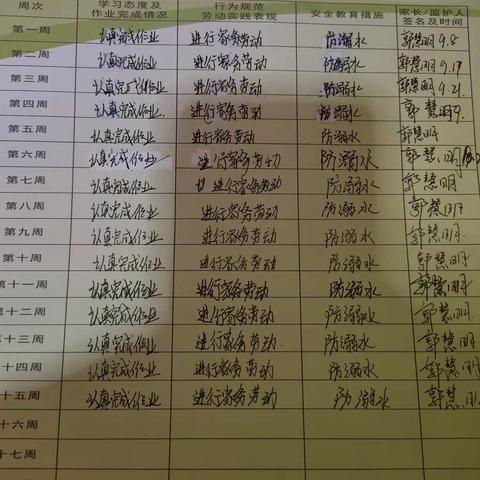 周次 学习态度及作业完成情况 行为规范劳动实践表现 安全教育措施 家长/监护人签名及时间
第一周 认真完成作业 进行家务劳动 防溺水 郭慧明 9.8
第二周 认真完成作业 进行家务劳动 防溺水 郭慧明 9.17
第三周 认真完成作业 进行家务劳动 防溺水 郭慧明 9.21
第四周 认真完成作业. 进行家务劳动 防溺水 郭慧明
第五周 认真完成作业 进行家务劳动 防溺水 郭慧明
第六周 认真完成作业 进行家务劳动 防溺水 郭慧明
第七周 认真完成作业 进行家务劳动 防溺水 郭慧明
第八周 认真完成作业 进行家务劳动 防溺水 郭慧明
第九周 认真完成作业 进行家务劳动 防溺水 郭慧明
第十周 认真完成作业 进行家务劳动 防溺水 郭慧明
第十一周 认真完成作业 进行家务劳动 防溺水 郭慧明
第十二周 认真完成作业 进行家务劳动 防溺水 郭慧明
第十三周 认真完成作业 进行家务劳动. 防溺水 郭慧明
十四周 认真完成作业 进行家务劳动 防溺水 郭慧明
十五周 认真完成作业 进行家务劳动 防溺水 郭慧明
十六周
十七周